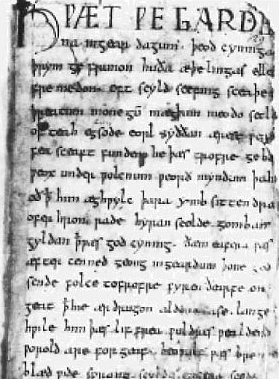 HǷÆT ǷE GARDE
na ingear dagum. þeod cyninga
þrym ge frunon huða æþelingas elle
fre medon. oft scyld scefing sceaþe
þreatum monegū mægþum meodo setl
of teah egsode eorl syððan ærest ƿear
fea sceaft funden he þæs frofre geba
ƿeox under ƿolcnum ƿeorð myndum þah
oð ꝥ him æghƿylc þara ymb sittendra
ofer hron rade hyran scolde gomban
gyldan ꝥ ƿæs god cyning. ðæm eafera ƿæs
æfter cenned geong ingeardum þone god
sende folce tofrofre fyren ðearfe on
geat ꝥ hie ær drugon aldor ase. lange
hƿile him þæs lif frea ƿuldres ƿealdend
ƿorold are for geaf. beoƿulf ƿæs breme
blæd ƿide sprang scyldes eafera scede